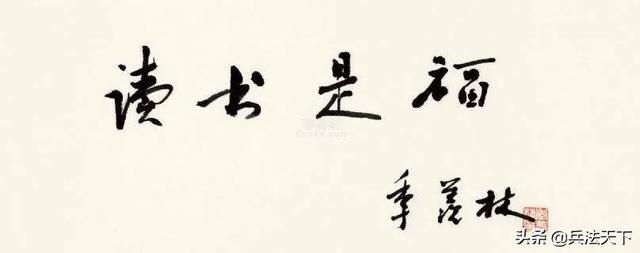 讀书是福
季羡林
头条 @兵法天下